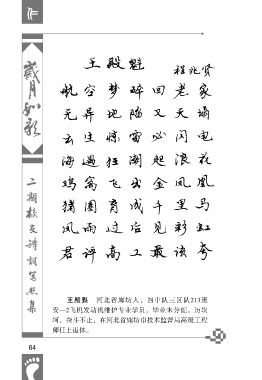 作
岁月如歌
二期校友诗词写照集
王殿魁
程兆贤
航空梦碎回老家
元异地陷又天塌
云生惊雷必闪电
海遇狂潮起浪花
鸡窝飞出金凤凰
猪圈育成千里马
风雨过后见彩虹
君评高工最该夸
王殿魁 河北省廊坊人，四中队三区队213班
安—2飞机发动机维护专业学员，毕业未分配。历坎
坷，奋斗不止，在河北省廊坊市技术监督局高级工程
师任上退休。
64